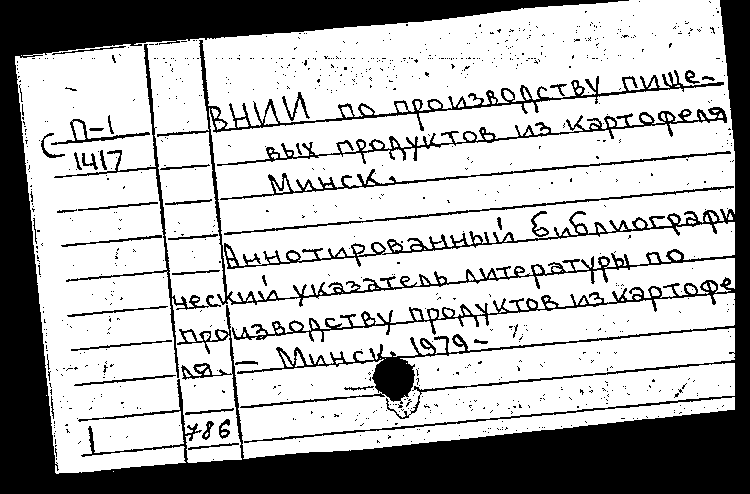 С П-1
1417
ВНИИ по производству пище-
вых продуктов из картофеля
Минск.
Аннотированный библиографи
ческий указатель литературы по
производству продуктов из картофе
ля. – Минск. 1979-
1 786